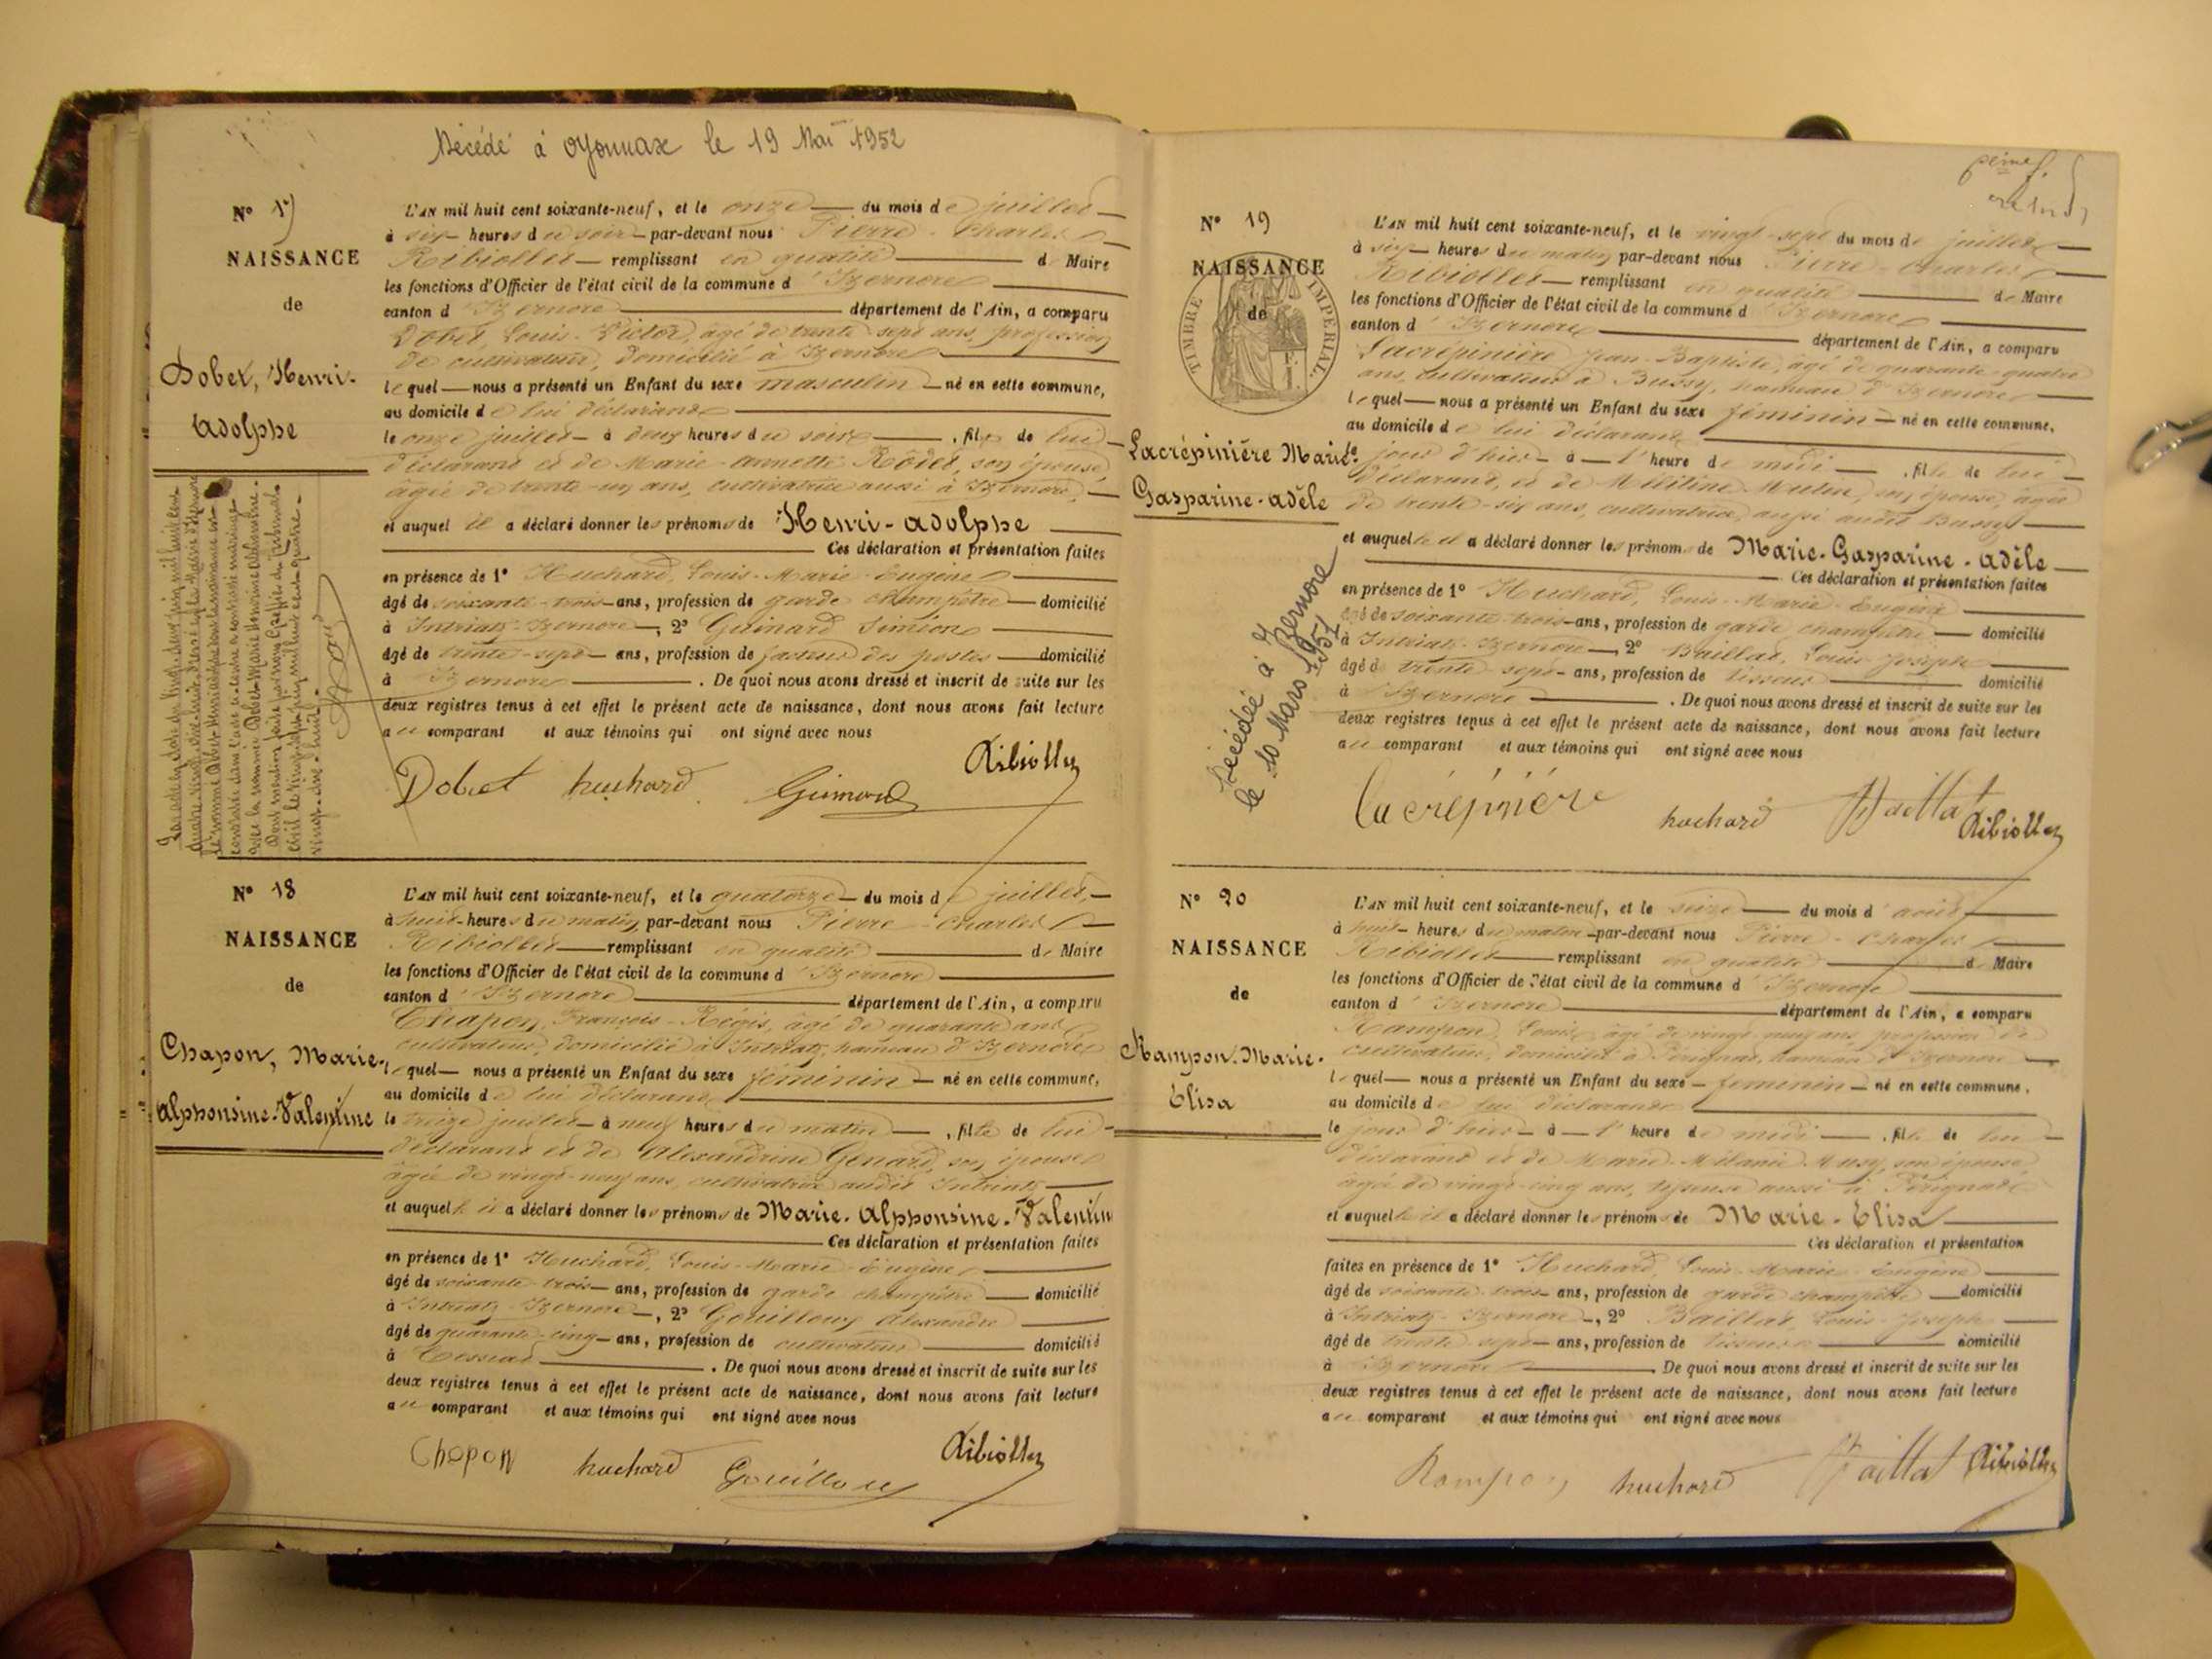 Décédé à Oyonnax le 19 Mai 1952
N° 17
NAISSANCE
de
Dobet, Henri-
Adolphe
L'AN mil huit cent soixante-neuf, et le onze du mois de juillet
à six heures du soir par-devant nous Pierre-Charles
Ribiollet remplissant en qualité de Maire
les fonctions d'Officier de l'état civil de la commune d'Izernore
canton d'Izernore département de l'Ain, a comparu
Dobet, Louis-Victor, âgé de trente-sept ans, profession
de cultivateur, domicilié à Izernore
lequel nous a présenté un Enfant du sexe masculin né en cette commune,
au domicile de lui déclarant
le onze juillet à deux heures du soir, fils de lui
déclarant et de Marie-Annette Rodet, son épouse
âgée de trente-un ans, cultivatrice aussi à Izernore,
et auquel il a déclaré donner les prénoms de Henri-Adolphe
Ces déclaration et présentation faites
en présence de 1° Huchard, Louis-Marie-Eugène
âgé de soixante-trois ans, profession de garde champêtre domicilié
à Intriat-Izernore, 2° Guinard Siméon
âgé de trente-sept ans, profession de facteur des postes domicilié
à Izernore. De quoi nous avons dressé et inscrit de suite sur les
deux registres tenus à cet effet le présent acte de naissance, dont nous avons fait lecture
au comparant et aux témoins qui ont signé avec nous
Dobet huchard Guinard Ribiollet
N° 18
NAISSANCE
de
Chapon, Marie-
Alphonsine-Valentine
L'AN mil huit cent soixante-neuf, et le quatorze du mois de juillet,
à huit heures du matin par-devant nous Pierre-Charles
Ribiollet remplissant en qualité de Maire
les fonctions d'Officier de l'état civil de la commune d'Izernore
canton d'Izernore département de l'Ain, a comparu
Chapon, François-Régis, âgé de quarante ans
cultivateur, domicilié à Intriat, hameau d'Izernore
lequel nous a présenté un Enfant du sexe féminin né en cette commune,
au domicile de lui déclarant
le treize juillet à neuf heures du matin, fille de lui
déclarant et de Alexandrine Genard, son épouse
âgée de vingt-neuf ans, cultivatrice audit Intriat
et auquel il a déclaré donner les prénoms de Marie-Alphonsine-Valentin
Ces déclaration et présentation faites
en présence de 1° Huchard, Louis-Marie-Eugène
âgé de soixante-trois ans, profession de garde champêtre domicilié
à Intriat-Izernore, 2° Gouilloux Alexandre
âgé de quarante-cinq ans, profession de cultivateur domicilié
à. De quoi nous avons dressé et inscrit de suite sur les
deux registres tenus à cet effet le présent acte de naissance, dont nous avons fait lecture
au comparant et aux témoins qui ont signé avec nous
Chapon huchard Gouilloux Ribiollet
N° 19
NAISSANCE
de
TIMBRE IMPERIAL
Lacrépinière Marie-
Gasparine-Adèle
Décédée à Izernore
le 10 Mars 1951
L'AN mil huit cent soixante-neuf, et le vingt-sept du mois de juillet
à six heures du matin par-devant nous Pierre-Charles
Ribiollet remplissant en qualité de Maire
les fonctions d'Officier de l'état civil de la commune d'Izernore
canton d'Izernore département de l'Ain, a comparu
Lacrépinière Jean-Baptiste, âgé de quarante-quatre
ans, cultivateur à Bussy, hameau d'Izernore
lequel nous a présenté un Enfant du sexe féminin né en cette commune,
au domicile de lui déclarant
le jour d'hier à l'heure de midi, fille de lui
déclarant, et de son épouse, âgée
de trente-six ans, cultivatrice, aussi audit Bussy
et auquel il a déclaré donner les prénoms de Marie-Gasparine-Adèle
Ces déclaration et présentation faites
en présence de 1° Huchard, Louis-Marie-Eugène
âgé de soixante-trois ans, profession de garde champêtre domicilié
à Intriat-Izernore, 2° Baillat, Louis-Joseph
âgé de trente-sept ans, profession de tisseur domicilié
à Izernore. De quoi nous avons dressé et inscrit de suite sur les
deux registres tenus à cet effet le présent acte de naissance, dont nous avons fait lecture
au comparant et aux témoins qui ont signé avec nous
Lacrépinière huchard Baillat Ribiollet
N° 20
NAISSANCE
de
Rampon, Marie-
Elisa
L'AN mil huit cent soixante-neuf, et le seize du mois d'août
à huit heures du matin par-devant nous Pierre-Charles
Ribiollet remplissant en qualité de Maire
les fonctions d'Officier de l'état civil de la commune d'Izernore
canton d'Izernore département de l'Ain, a comparu
Rampon, Louis, âgé de vingt-neuf ans, profession de
cultivateur, domicilié à Pérignat, hameau d'Izernore
lequel nous a présenté un Enfant du sexe féminin né en cette commune,
au domicile de lui déclarant
le jour d'hier à l'heure de midi, fille de lui
déclarant et de Marie-Mélanie Musy, son épouse,
âgée de vingt-cinq ans, aussi à Pérignat
et auquel il a déclaré donner les prénoms de Marie-Elisa
Ces déclaration et présentation
faites en présence de 1° Huchard, Louis-Marie-Eugène
âgé de soixante-trois ans, profession de garde champêtre domicilié
à Intriat-Izernore, 2° Baillat, Louis-Joseph
âgé de trente-sept ans, profession de tisseur domicilié
à Izernore. De quoi nous avons dressé et inscrit de suite sur les
deux registres tenus à cet effet le présent acte de naissance, dont nous avons fait lecture
au comparant et aux témoins qui ont signé avec nous
Rampon huchard Baillat Ribiollet